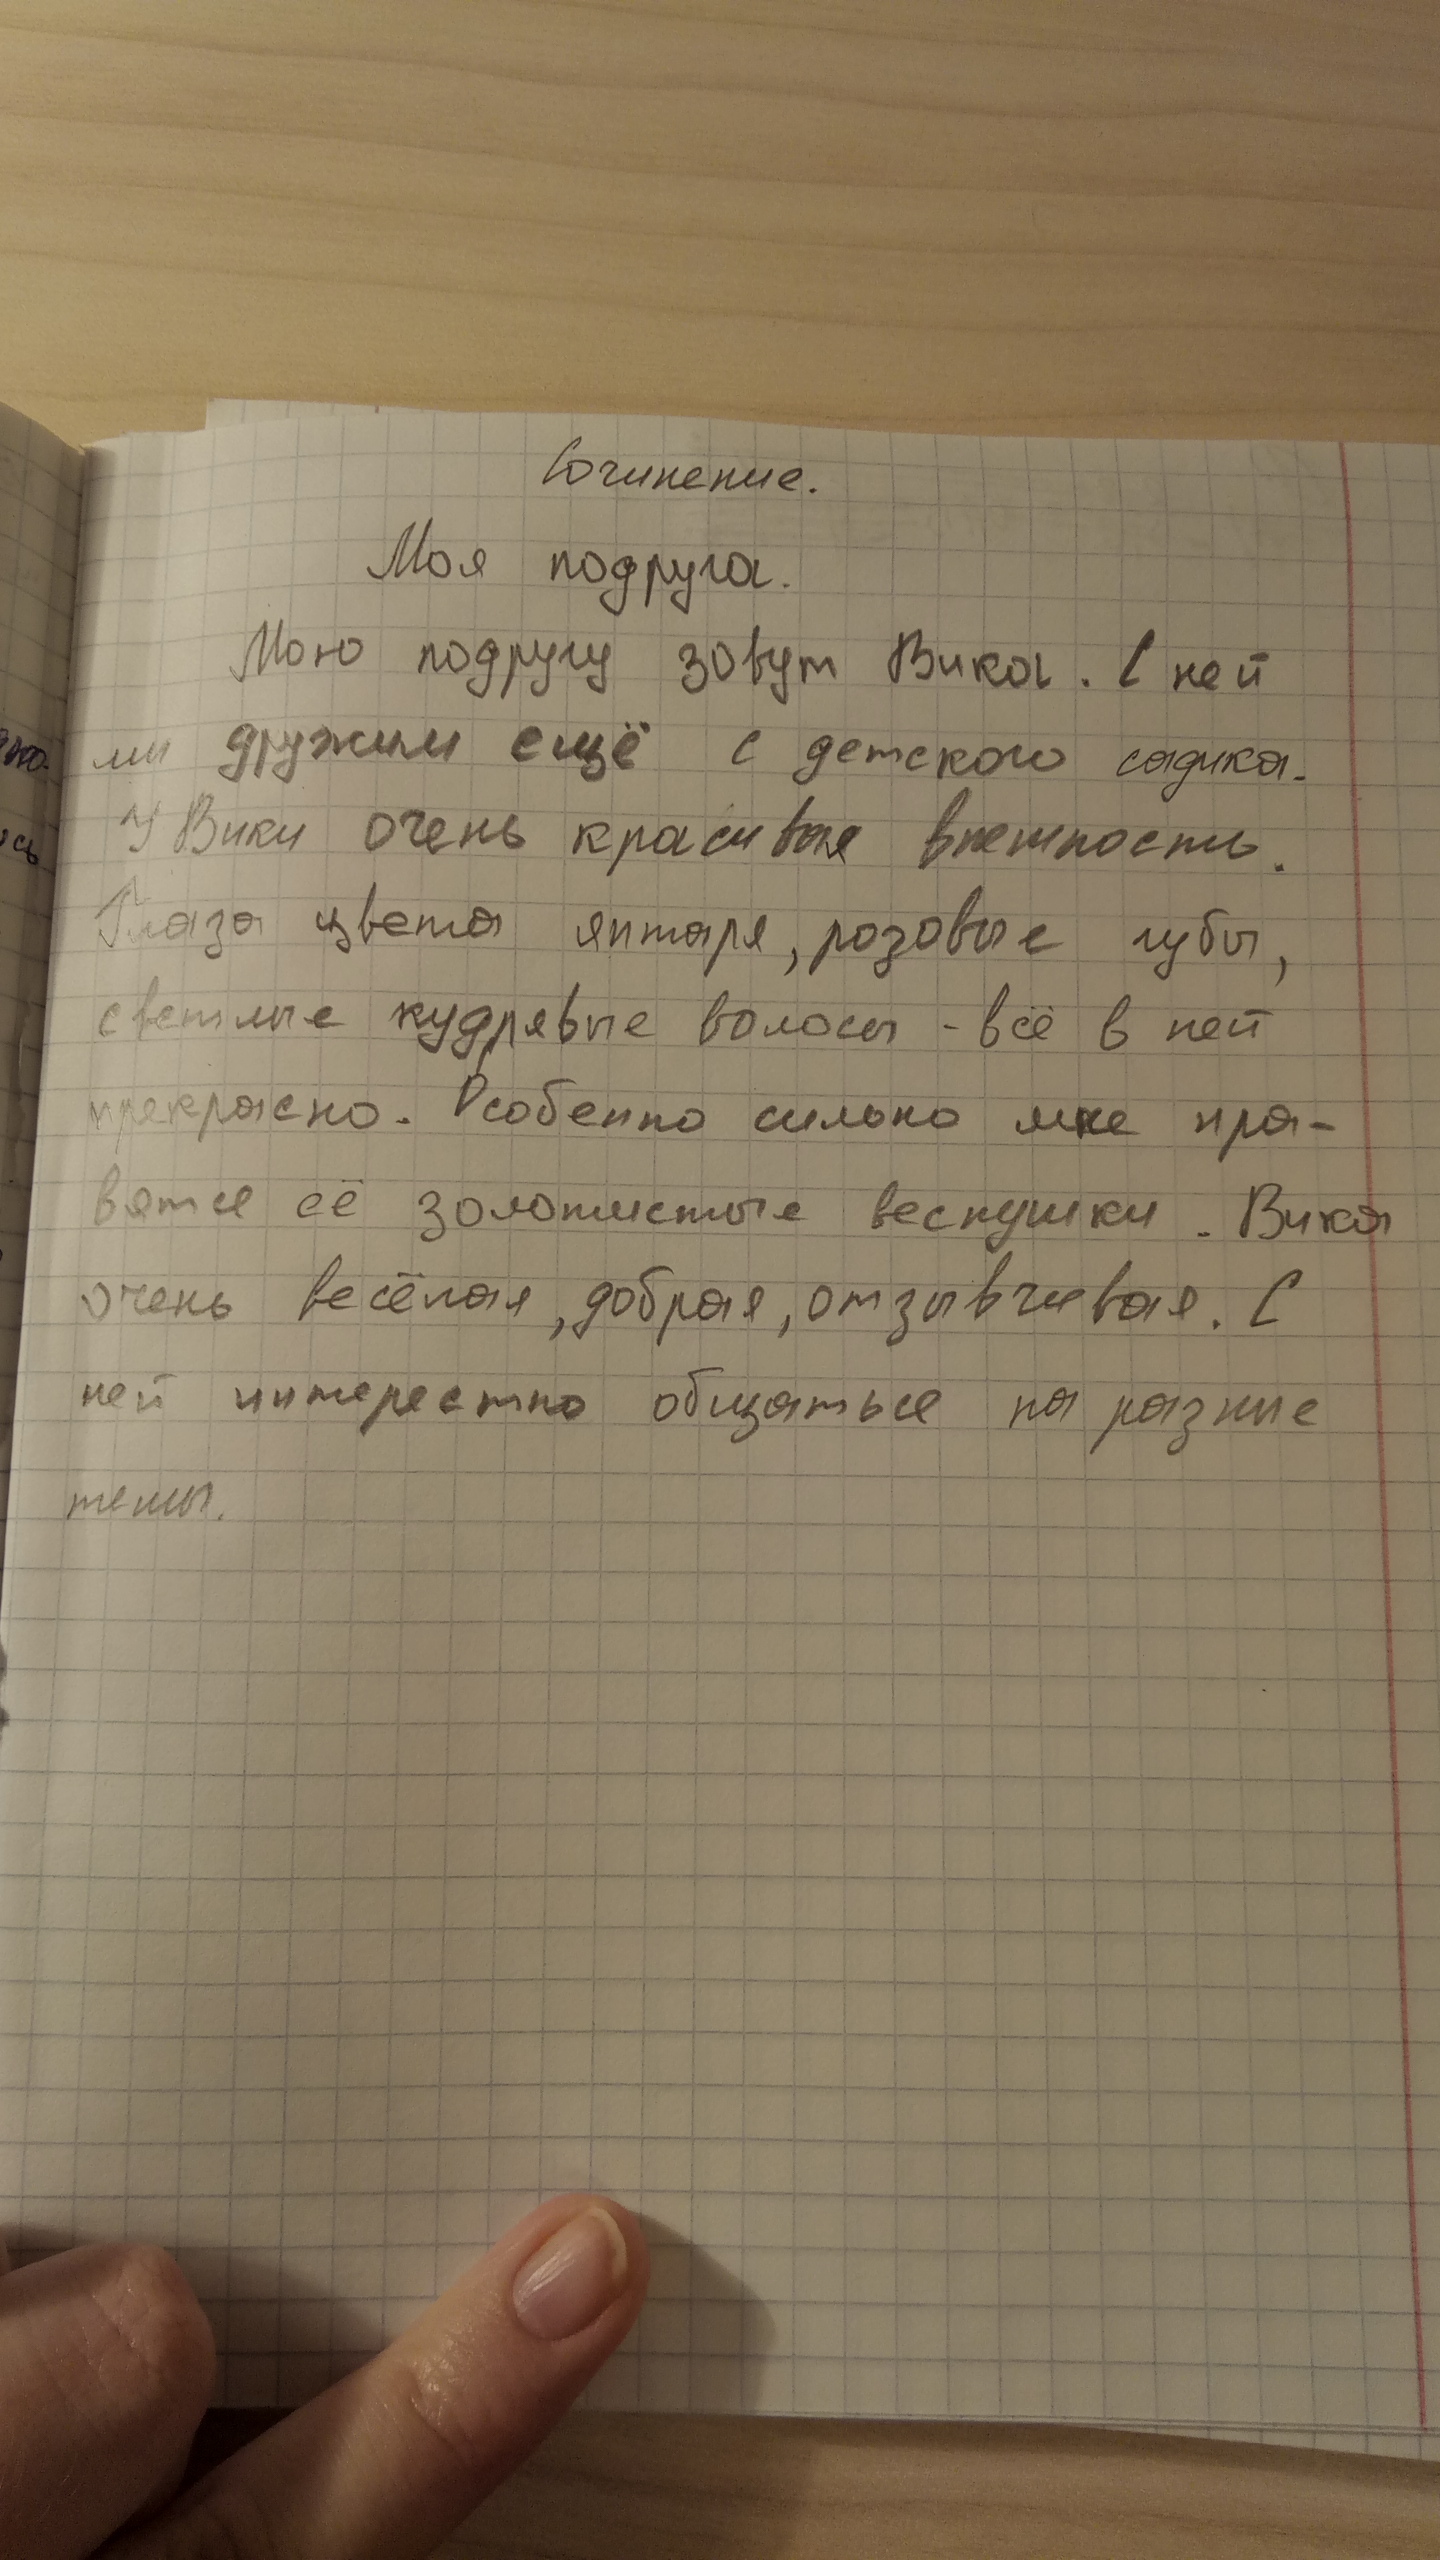 Сочинение.
Моя подруга.
Мою подругу зовут Вика. С ней
мы дружим ещё с детского садика.
У Вики очень красивая внешность.
Глаза цвета янтаря, розовые губы,
светлые кудрявые волосы - всё в ней
прекрасно. Особенно сильно мне нра-
вятся её золотистые веснушки. Вика
очень весёлая, добрая, отзывчивая. С
ней интерестно общаться на разные
темы.